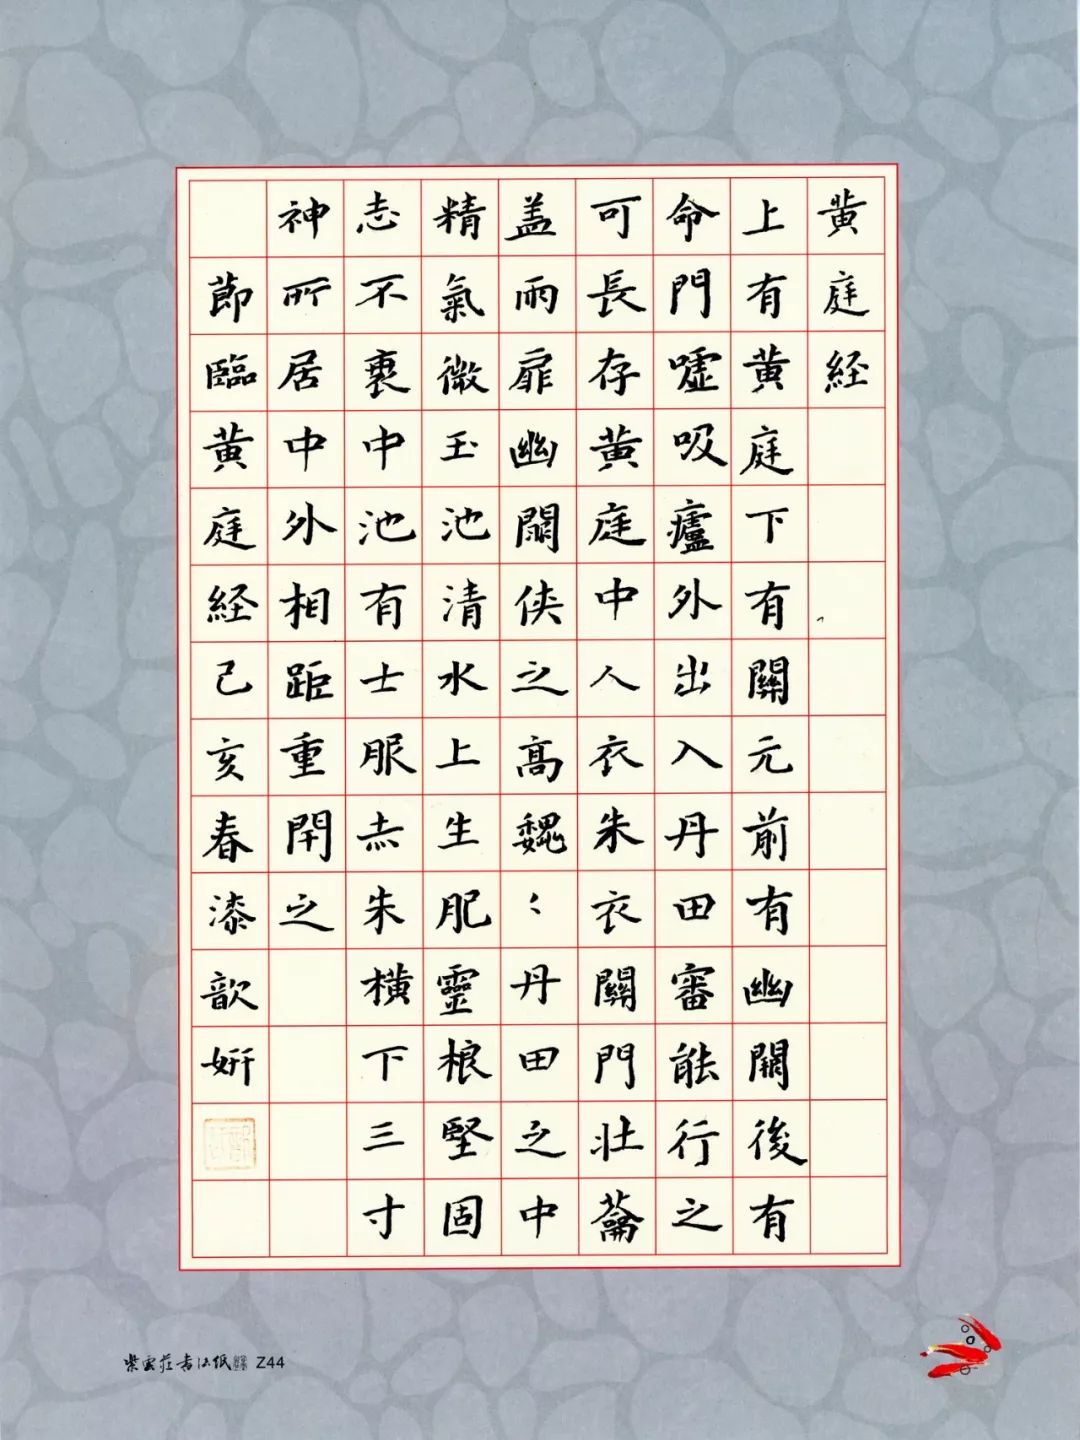 黄庭経
上有黄庭下有關元前有幽闕後有
命門嘘吸廬外出入丹田審能行之
可長存黄庭中人衣朱衣關門壮蘥
盖兩扉幽闕侠之高魏〻丹田之中
精氣微玉池清水上生肥靈根堅固
志不衰中池有士服赤朱横下三寸
神所居中外相距重閇之
節臨黄庭経己亥春漆歆妍
紫雲莊書法纸 Z44